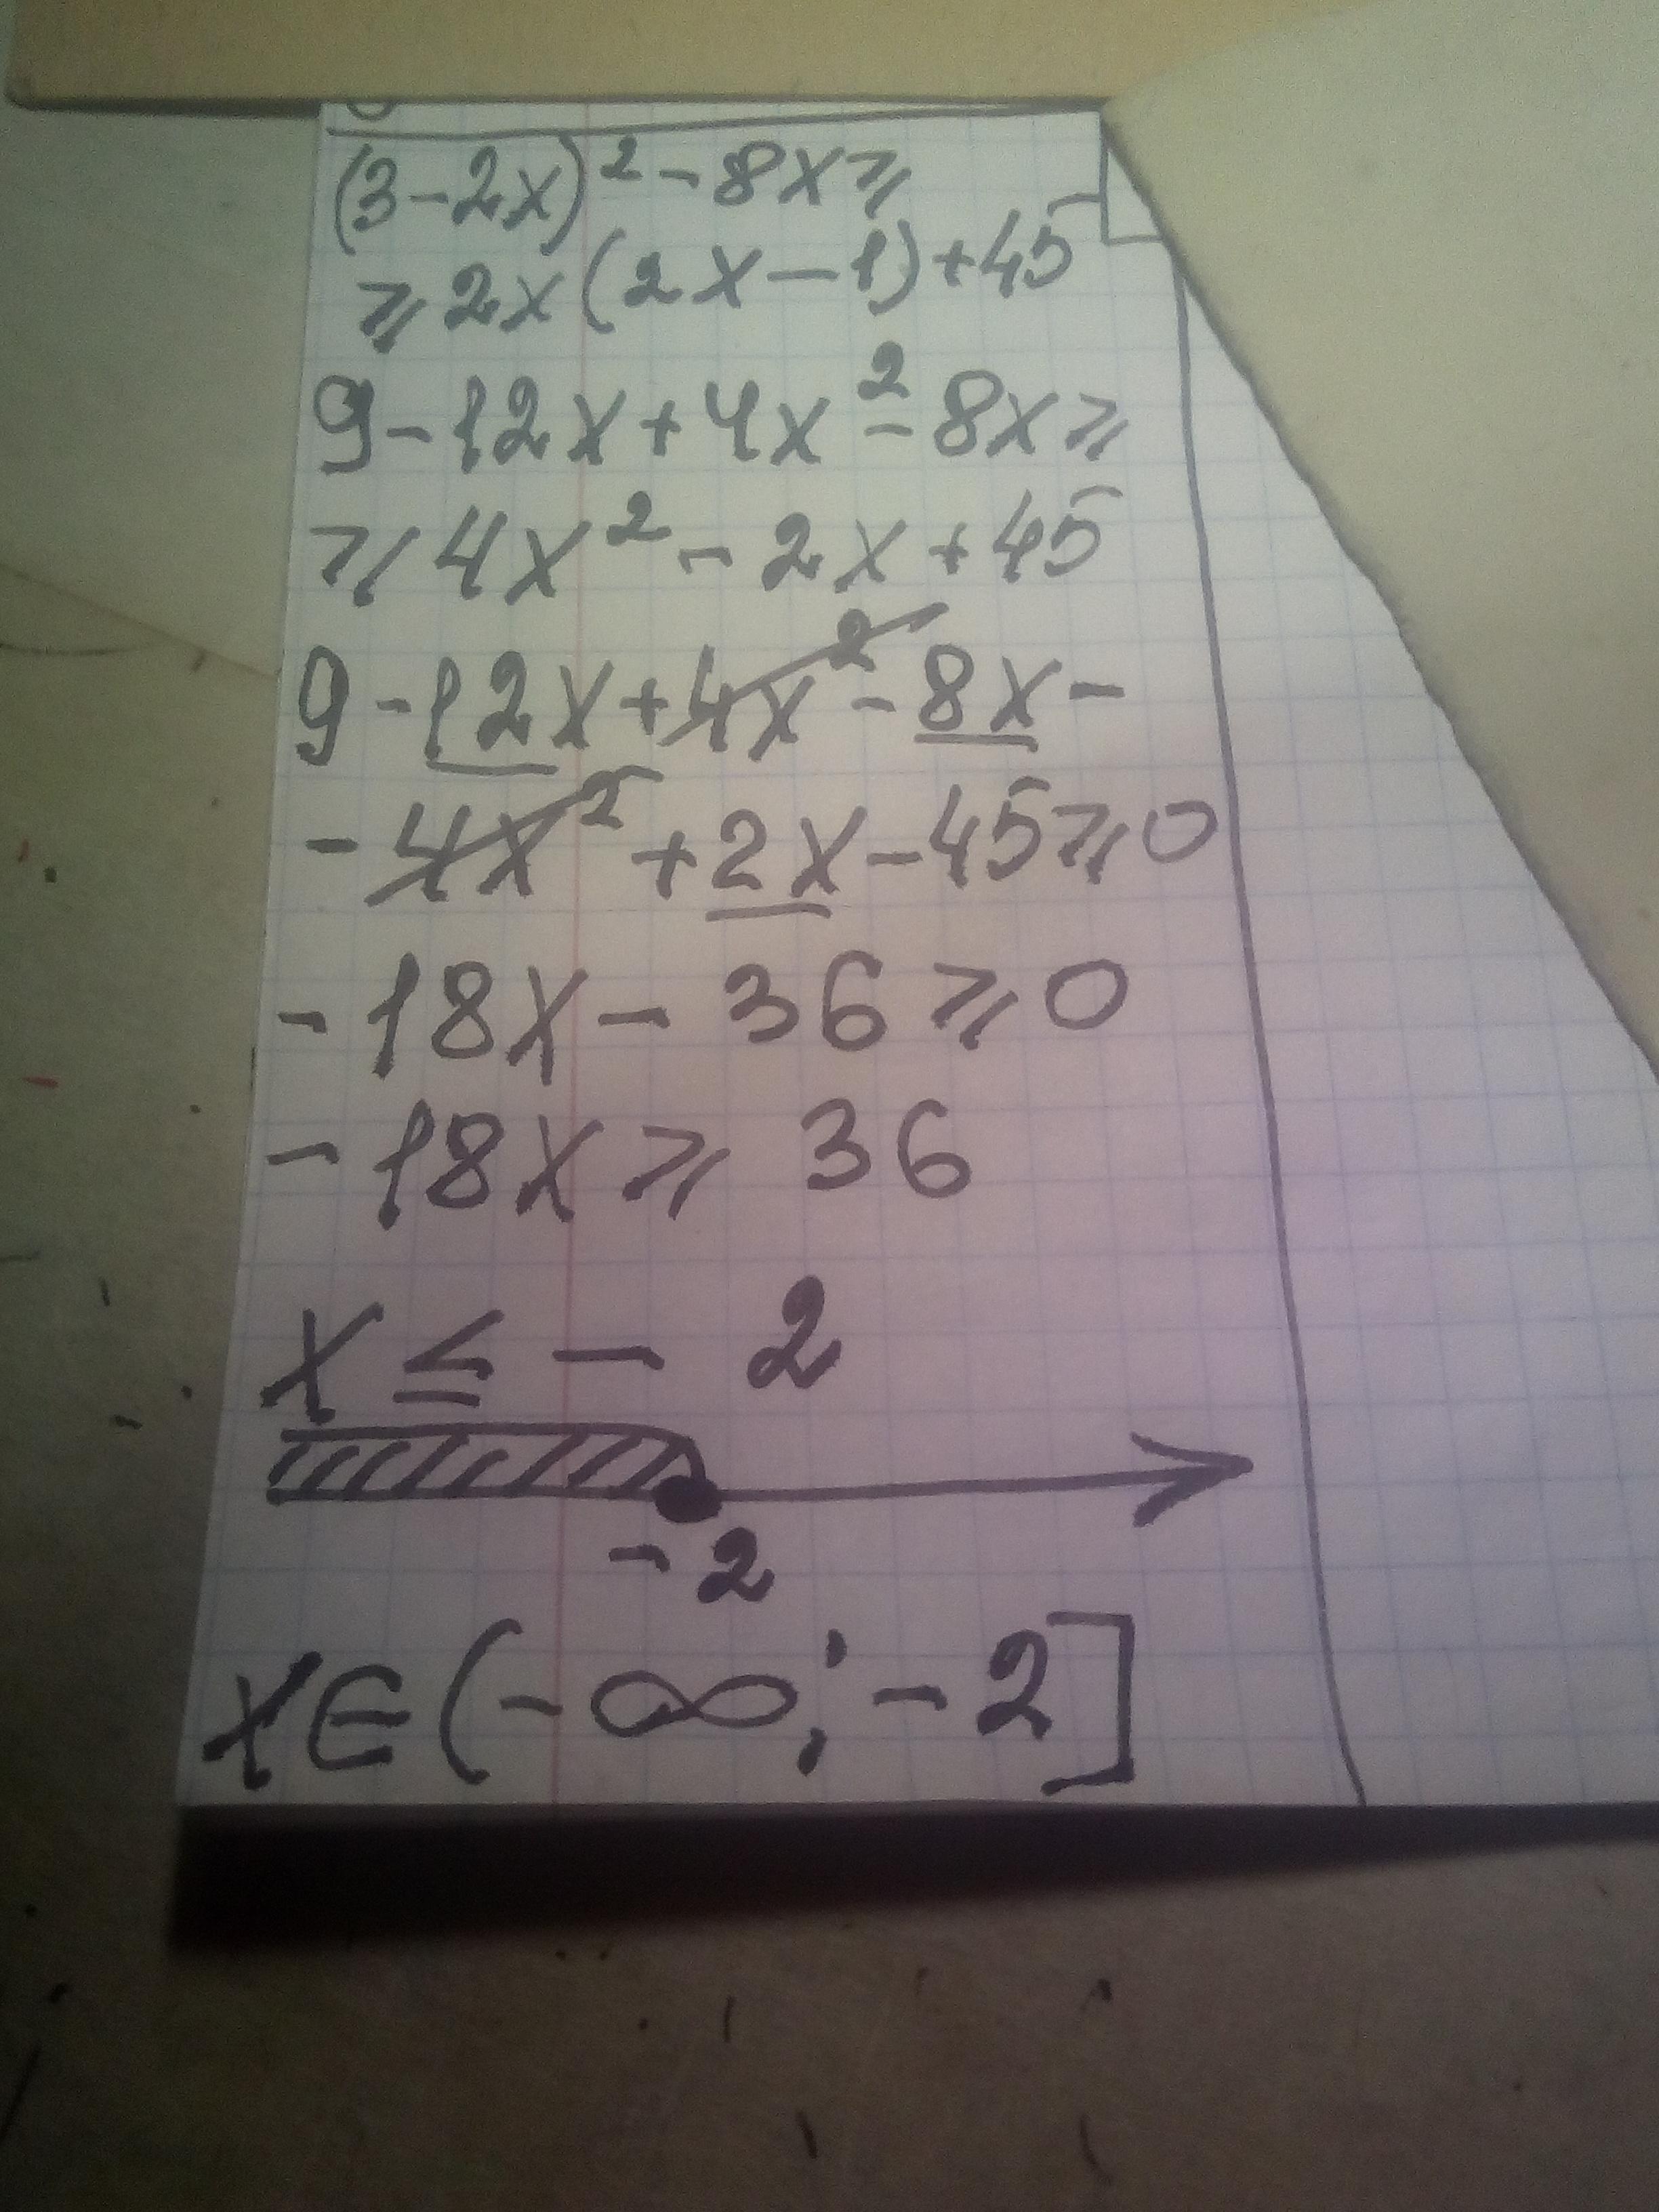 (3-2x)² - 8x ⩾
⩾ 2x(2x-1)+45
9-12x+4x²-8x⩾
⩾4x²-2x+45
9-12x+4x²-8x-
-4x²+2x-45⩾0
-18x-36⩾0
-18x⩾36
x ≤ -2
-2
x∈(-∞;-2]